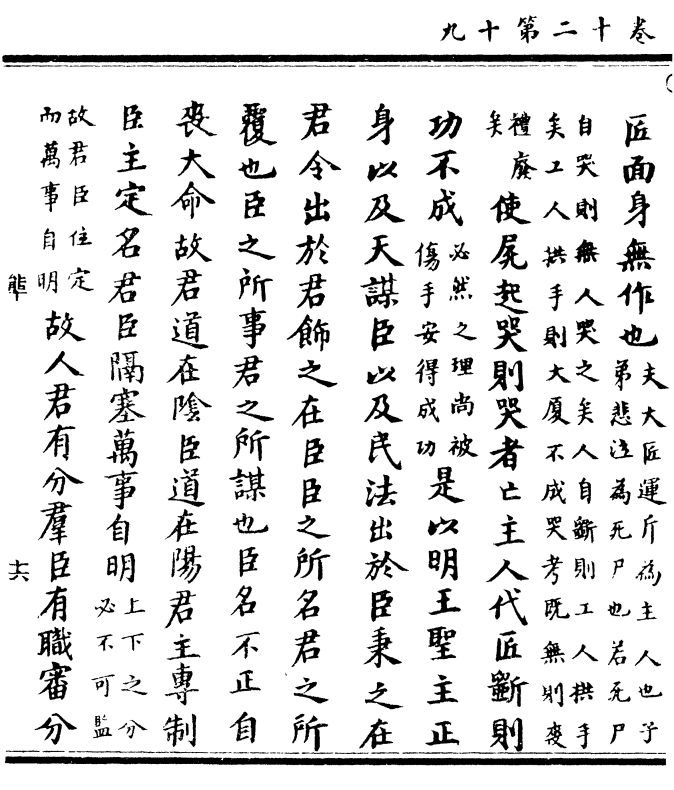 卷十二第十九
匠面身無作也夫大匠運斤為主人也子
弟悲泣為死尸也若死尸
自哭則無人哭之矣人自斲則工人拱手
矣工人拱手則大厦不成哭考既無則喪
禮廢
矣
使屍起哭則哭者亡主人代匠斲則
功不成必然之理尚被
傷手安得成功
是以明王聖主正
身以及天謀臣以及民法出於臣秉之在
君令出於君飾之在臣臣之所名君之所
覆也臣之所事君之所謀也臣名不正自
喪大命故君道在陰臣道在陽君主專制
臣主定名君臣隔塞萬事自明上下之分
必不可監
故君臣住定
而萬事自明
故人君有分羣臣有職審分
六